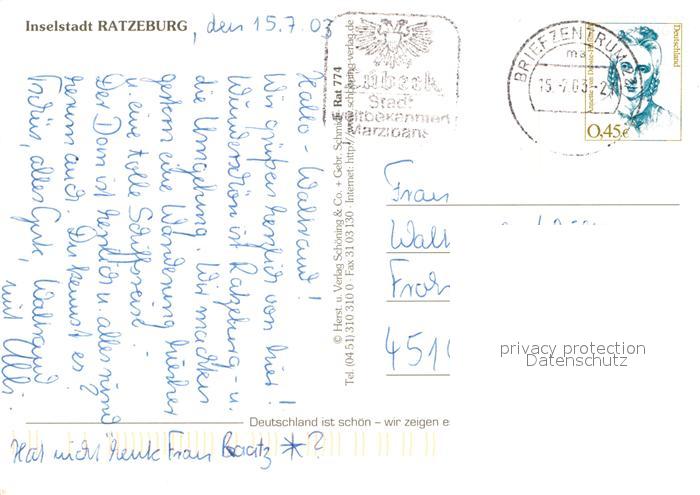 Inselstadt RATZEBURG, den 15.7.03
Hallo - Waltraud!
Wir grüßen herzlich von hier!
Wunderschön ist Ratzeburg - u.
die Umgebung. Wir machten
gestern eine Wanderung hierher
u. eine tolle Schiffsreise!
Der Dom ist herrlich u. alles rund
herum auch. Du kennst es
Tschüss, alles Gute, Waltraud
mit
Hat nicht heute Frau Baatz * ?
© Herst. u. Verlag Schöning & Co. + Gebr. Schmidt
Tel. (04 51) 310 310 0 - Fax 31 03 130 - Internet: http://www.schoening-verlag.de
Rat 774
Lübeck
Stadt
weltbekannten
Marzipans
BRIEFZENTRUM 23
ma
15.-7.03-2
Deutschland
0,45€
Frau
Walt
Froh
4510
privacy protection
Datenschutz
Deutschland ist schön – wir zeigen e